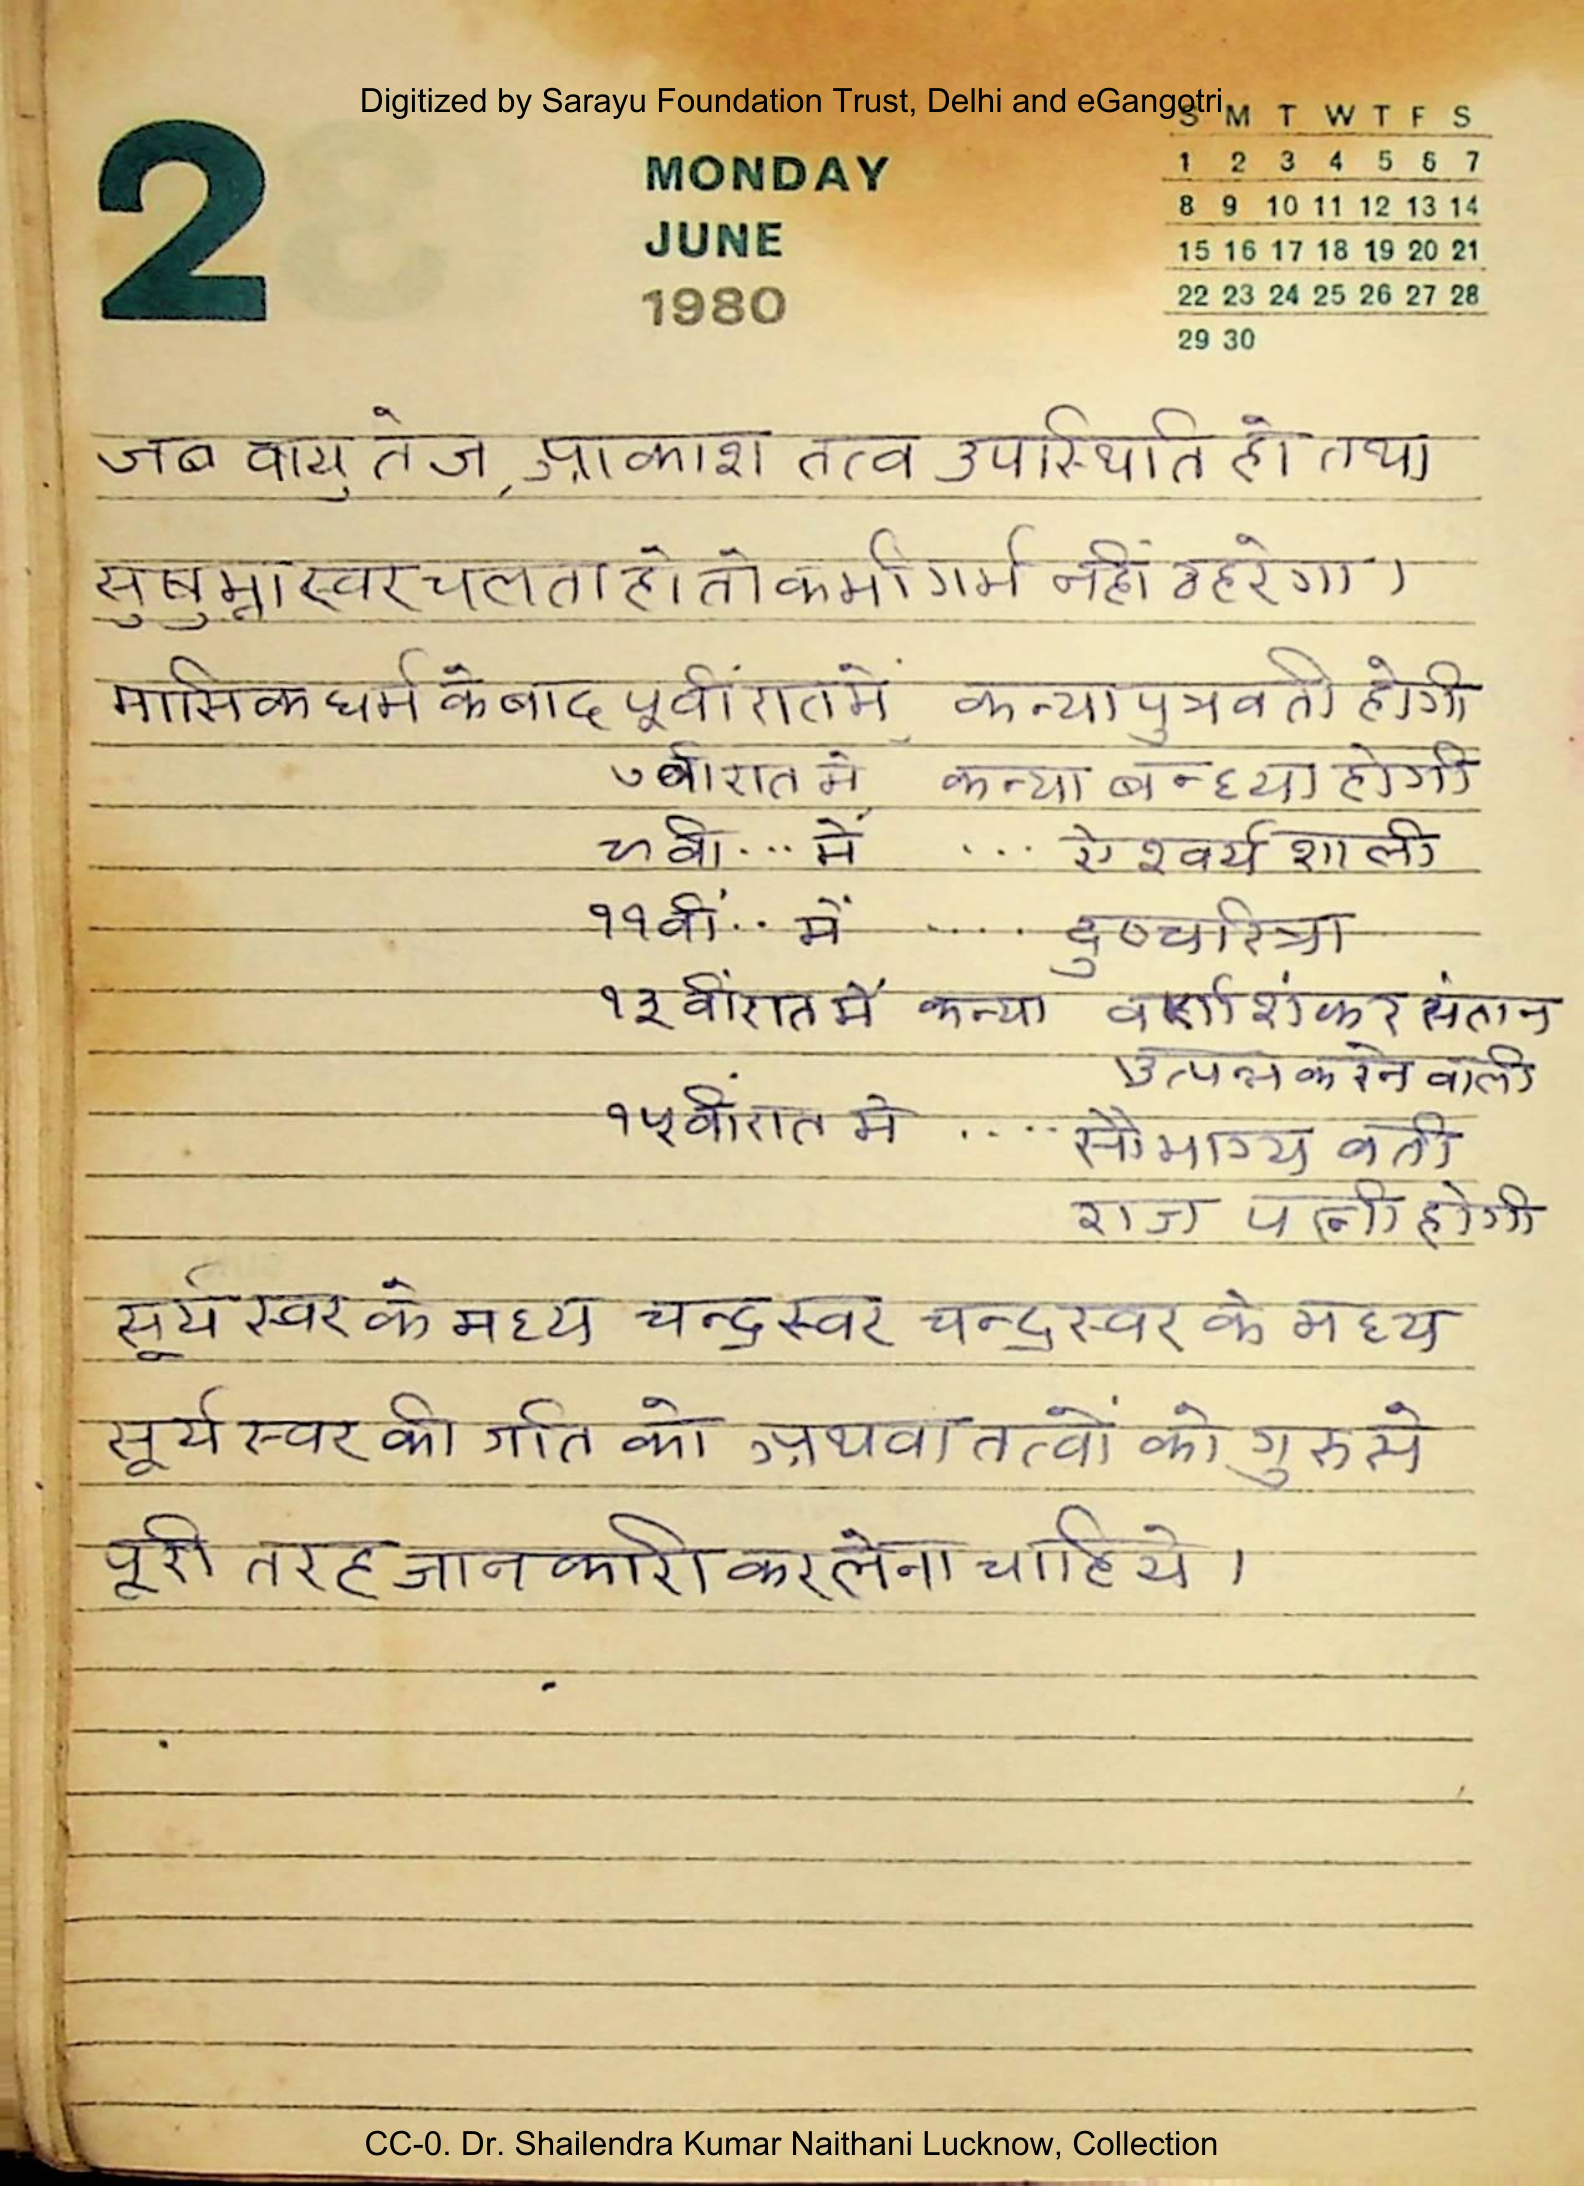 Digitized by Sarayu Foundation Trust, Delhi and eGangotri
2
MONDAY
JUNE
1980
S M T W T F S
1 2 3 4 5 6 7
8 9 10 11 12 13 14
15 16 17 18 19 20 21
22 23 24 25 26 27 28
29 30
जब वायु तेज, आकाश तत्व उपस्थिति हो तथा
सुषुम्ना स्वर चलता हो तो कभी गर्भ नहीं ठहरेगा।
मासिक धर्म के बाद ५वीं रात में कन्या पुत्रवती होगी
७वी रात में कन्या बन्ध्या होगी
९वी ... में ... ऐश्वर्य शाली
११वीं .. में .... दुष्चरित्रा
१३ वीं रात में कन्या वर्ण शंकर संतान
उत्पन्न करने वाली
१५वीं रात में .... सौभाग्य वती
राज पत्नी होगी
सूर्य स्वर के मध्य चन्द्र स्वर चन्द्र स्वर के मध्य
सूर्य स्वर की गति को अथवा तत्वों को गुरु से
पूरी तरह जानकारी कर लेना चाहिये।
CC-0. Dr. Shailendra Kumar Naithani Lucknow, Collection